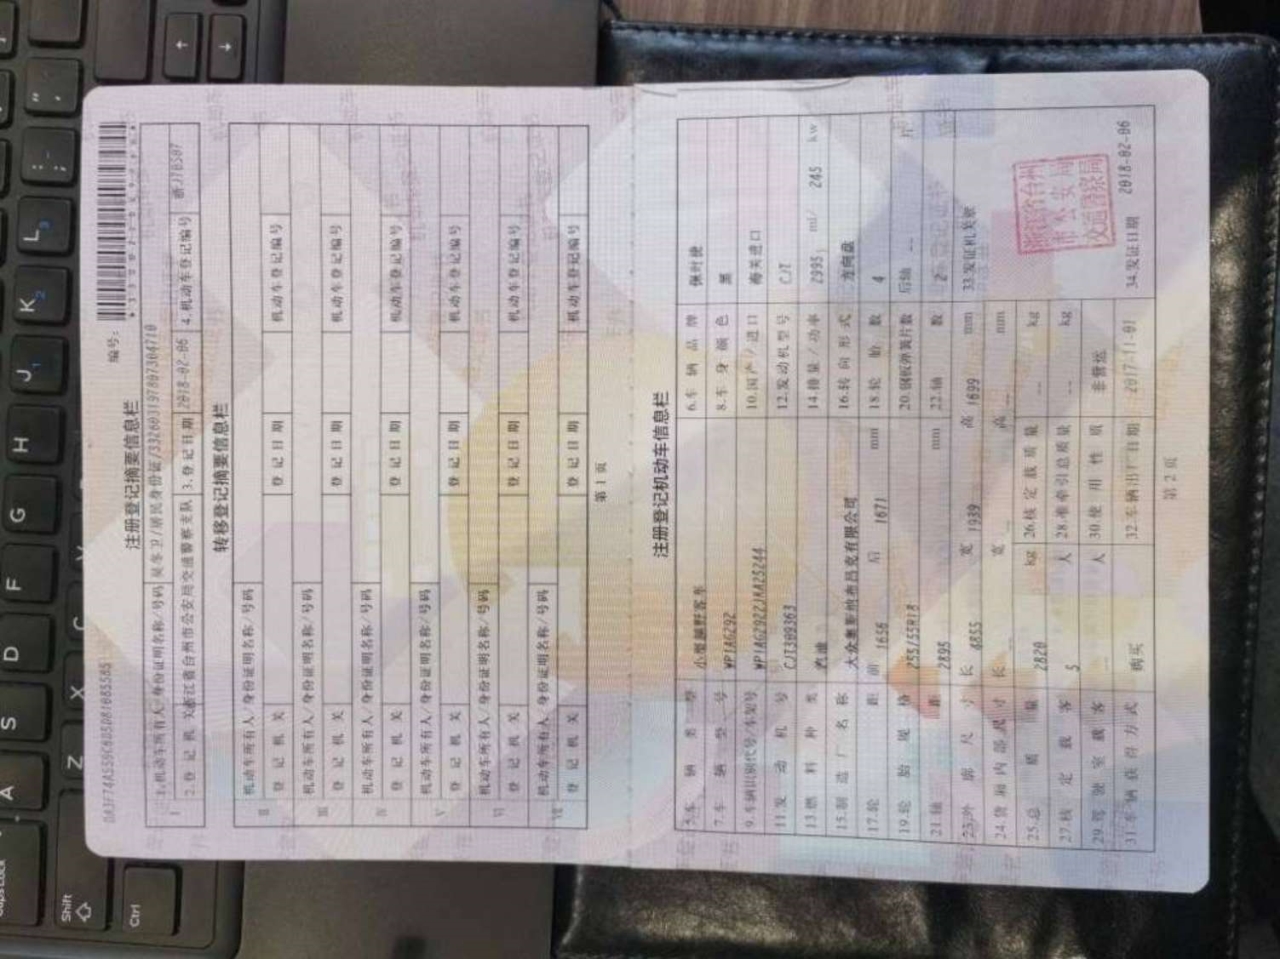 DA3F74A559C6D5D81685585
编号：
注册登记摘要信息栏
I 1.机动车所有人/身份证明名称/号码 /居民身份证/332603197807304710
2.登记机关 浙江省台州市公安局交通警察支队 3.登记日期 2018-02-06 4.机动车登记编号
转移登记摘要信息栏
II 机动车所有人/身份证明名称/号码
登记机关 登记日期 机动车登记编号
III 机动车所有人/身份证明名称/号码
登记机关 登记日期 机动车登记编号
IV 机动车所有人/身份证明名称/号码
登记机关 登记日期 机动车登记编号
V 机动车所有人/身份证明名称/号码
登记机关 登记日期 机动车登记编号
VI 机动车所有人/身份证明名称/号码
登记机关 登记日期 机动车登记编号
VII 机动车所有人/身份证明名称/号码
登记机关 登记日期 机动车登记编号
第1页
注册登记机动车信息栏
5.车辆类型 小型越野客车 6.车辆品牌 保时捷
7.车辆型号 WP1AG292 8.车身颜色 黑
9.车辆识别代号/车架号 WP1AG2922JKA25244 10.国产/进口 海关进口
11.发动机号 CJT309363 12.发动机型号 CJT
13.燃料种类 汽油 14.排量/功率 2995 ml/ 245 kw
15.制造厂名称 大众奥斯纳布吕克有限公司 16.转向形式 方向盘
17.轮距 前 1656 后 1671 mm 18.轮胎数 4
19.轮胎规格 255/55R18 20.钢板弹簧片数 后轴 -- 片
21.轴距 2895 mm 22.轴数 2
23.外廓尺寸 长 4855 宽 1939 高 1699 mm 33.发证机关章
24.货厢内部尺寸 长 -- 宽 -- 高 -- mm
25.总质量 2820 kg 26.核定载质量 -- kg
27.核定载客 5 人 28.准牵引总质量 -- kg
29.驾驶室载客 -- 人 30.使用性质 非营运
31.车辆获得方式 购买 32.车辆出厂日期 2017-11-01 34.发证日期 2018-02-06
浙江省台州
市公安局
交通警察局
第2页
Caps Lock
Shift
Ctrl
A
S
D
F
G
H
J
K
L
Z
X
C
V